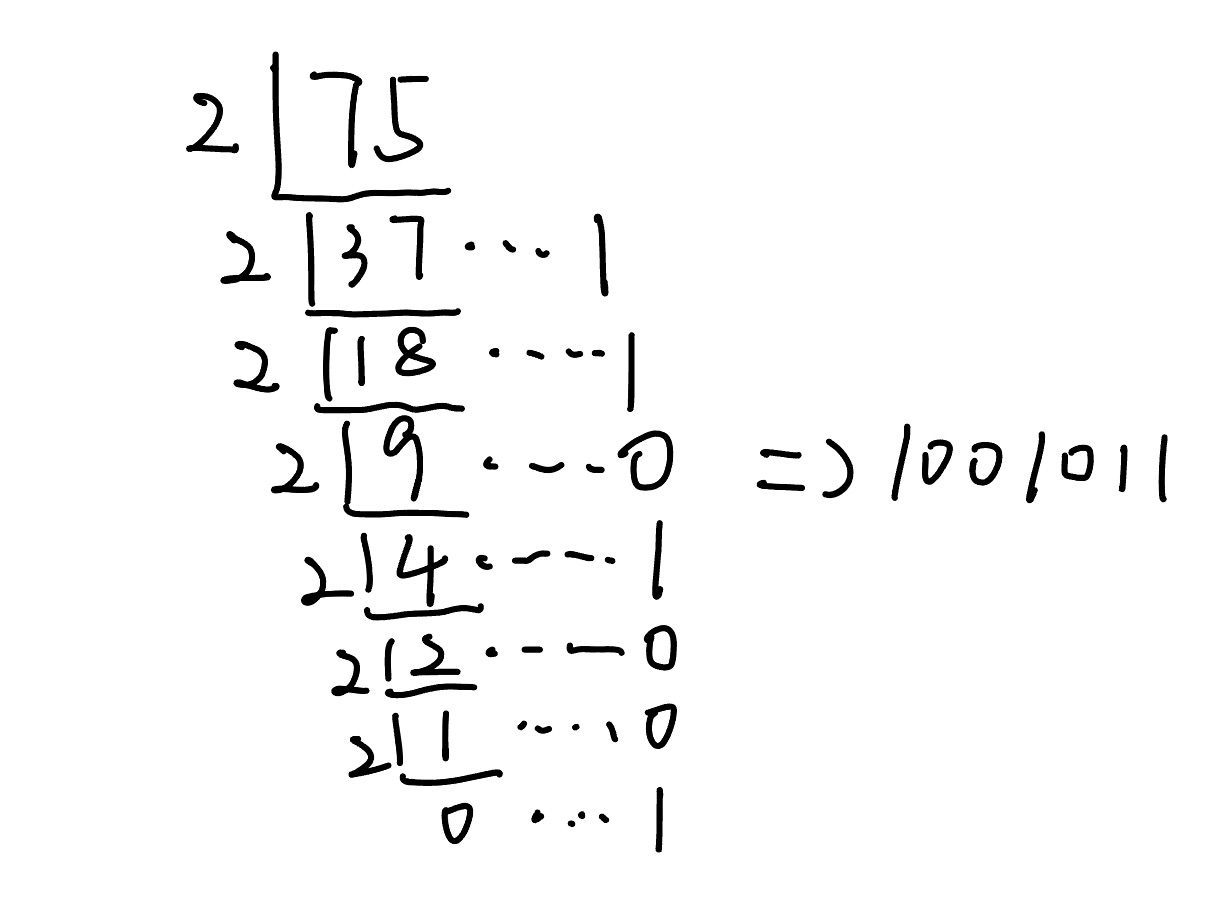 2 75
2 37 ... 1
2 18 ---- 1
2 9 ---- 0 => 1001011
2 4 ---- 1
2 2 --- 0
2 1 .... 0
0 ... 1